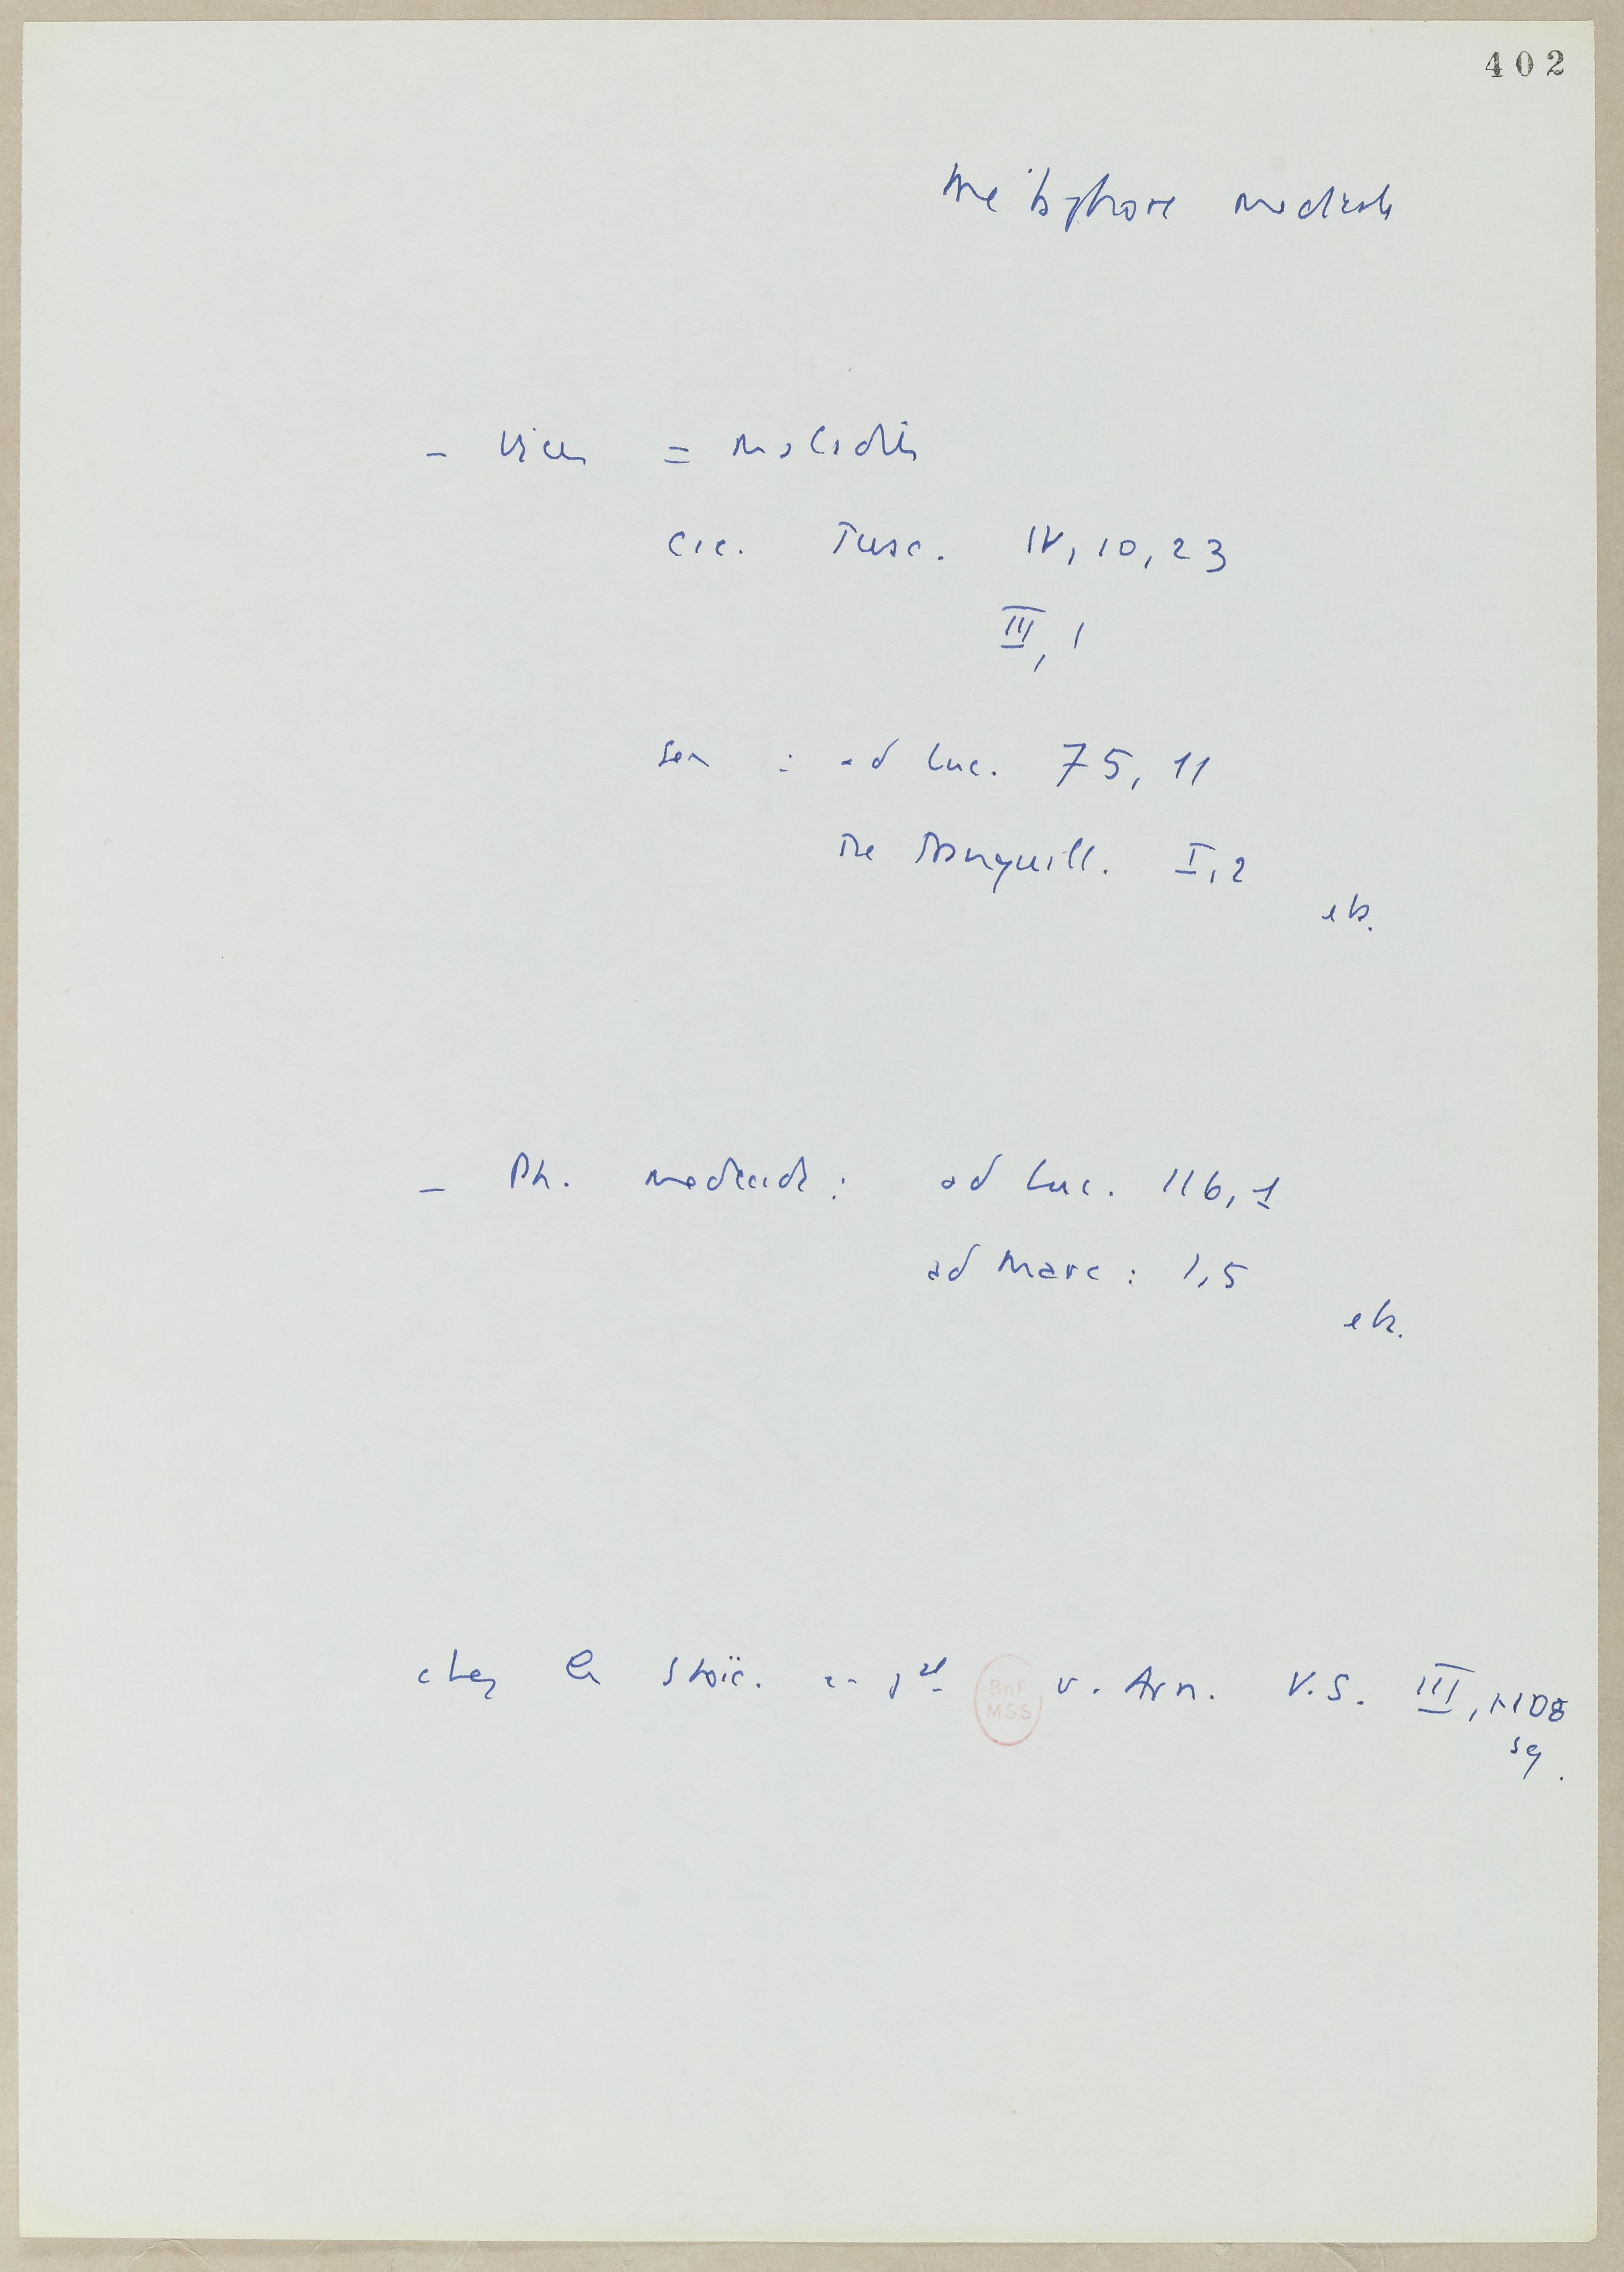 402
Métaphore medicale
- Vices = maladies
Cic. Tusc. IV, 10, 23
III, 1
Sen : ad Luc. 75, 11
De Tranquill. I, 2
etc.
- Ph. medecin : ad Luc. 116, 1
ad Marc : 1, 5
etc.
chez les Stoïc. en gal v. Arn. V.S. III,
sq.
BnF
MSS